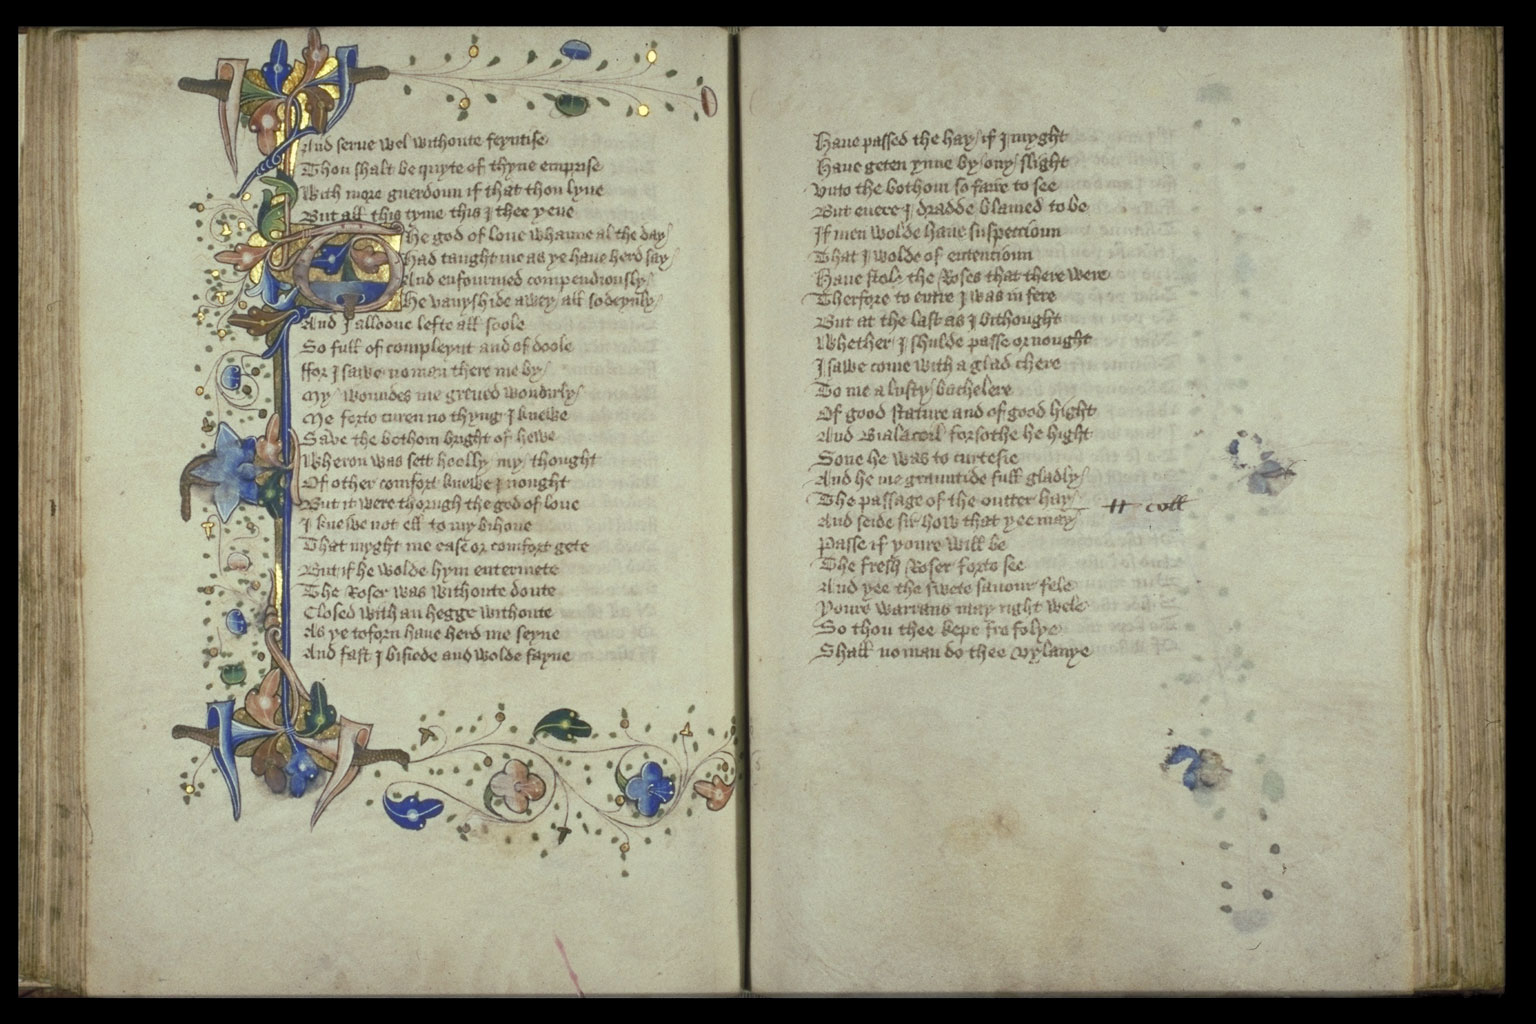 And serue wel withoute feyntise
Thou shalt be quyte of thyne emprise
With more guerdoun if that thou lyue
But all this tyme this I thee yeue
The god of loue whanne al the day
Had taught me as ye haue herd say
And enfourmed compendiously
He vanyshide awey all sodeynly
And I alloone lefte all soole
So full of compleynt and of doole
ffor I sawe no man there me by
My woundes me greued wondirly
Me forto curen no thyng I knewe
Save the bothom bright of hewe
Wheron was sett hoolly my thought
Of other comfort knewe I nought
But it were thorugh the god of loue
I knewe not ell to my bihoue
That myght me ease or comfort gete
But if he wolde hym entermete
The Roser was withoute doute
Closed with an hegge withoute
As ye toforn haue herd me seyne
And fast I bisiede and wolde fayne
Haue passed the hay if I myght
Haue geten ynne by ony slight
Vnto the bothom so faire to see
But euere I dradde blamed to be
If men wolde haue suspeccioun
That I wolde of entencioun
Haue stole the Roses that there were
Therfore to entre I was in fere
But at the last as I bithought
Whether I shulde passe or nought
I sawe come with a glad chere
To me a lusty bachelere
Of good stature and of good hight
And Bialacoil forsothe he hight
Sone he was to curtesie
And he me grauntide full gladly
The passage of the outter hay
And seide sir how that yee may
Passe if youre will be
The fresh Roser forto see
And yee the swete sauour fele
Youre warrans may right wele
So thou thee kepe fro folye
Shall no man do thee vylanye